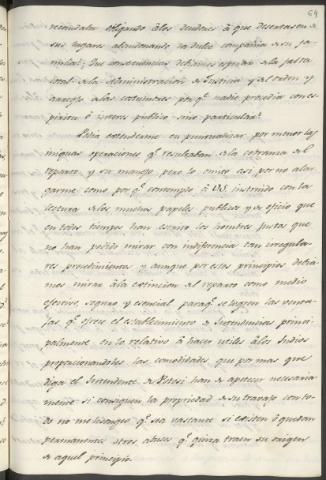 64
recaudador obligando âlos deudores â que desertasen de
sus lugares abandonando la dulce compañia de su fa-
milia; Que consecuencias debiamos esperar dela falta
total dela administracion de Justicia y del orden y
arreglo alas costumbres por q.e nadie procedia con es-
piritu ô interes publico sino particular.
Podia estenderme en puntualizar por menor las
iniquas operaciones q.e resultaban dela cobranza del
reparto, y su manejo pero lo omito asi por no alar-
garme como por q.e contemplo â VS. instruido con la
lectura delos muchos papeles publicos y de oficio que
en todos tiempos han escrito los hombres justos que
no han podido mirar con indiferencia tan irregula-
res procedimientos y aunque por estos principios debia-
mos mirar âla extincion del reparto como medio
efectivo, seguro y esencial para q.e se logren las venta-
jas q.e ofrece el establecimiento de Yntendencias princi-
palmente en lo relativo â hacer utiles âlos Yndios
proporcionandoles las comodidades que por mas que
diga el Yntendente de Potosi han de apetecer necesaria-
mente si consiguen la propiedad de su trabajo con to-
do no me lisongeo q.e sea vastante si existen ô quedan
permanentes otros abusos q.e quiza traen su origen
de aquel principio.